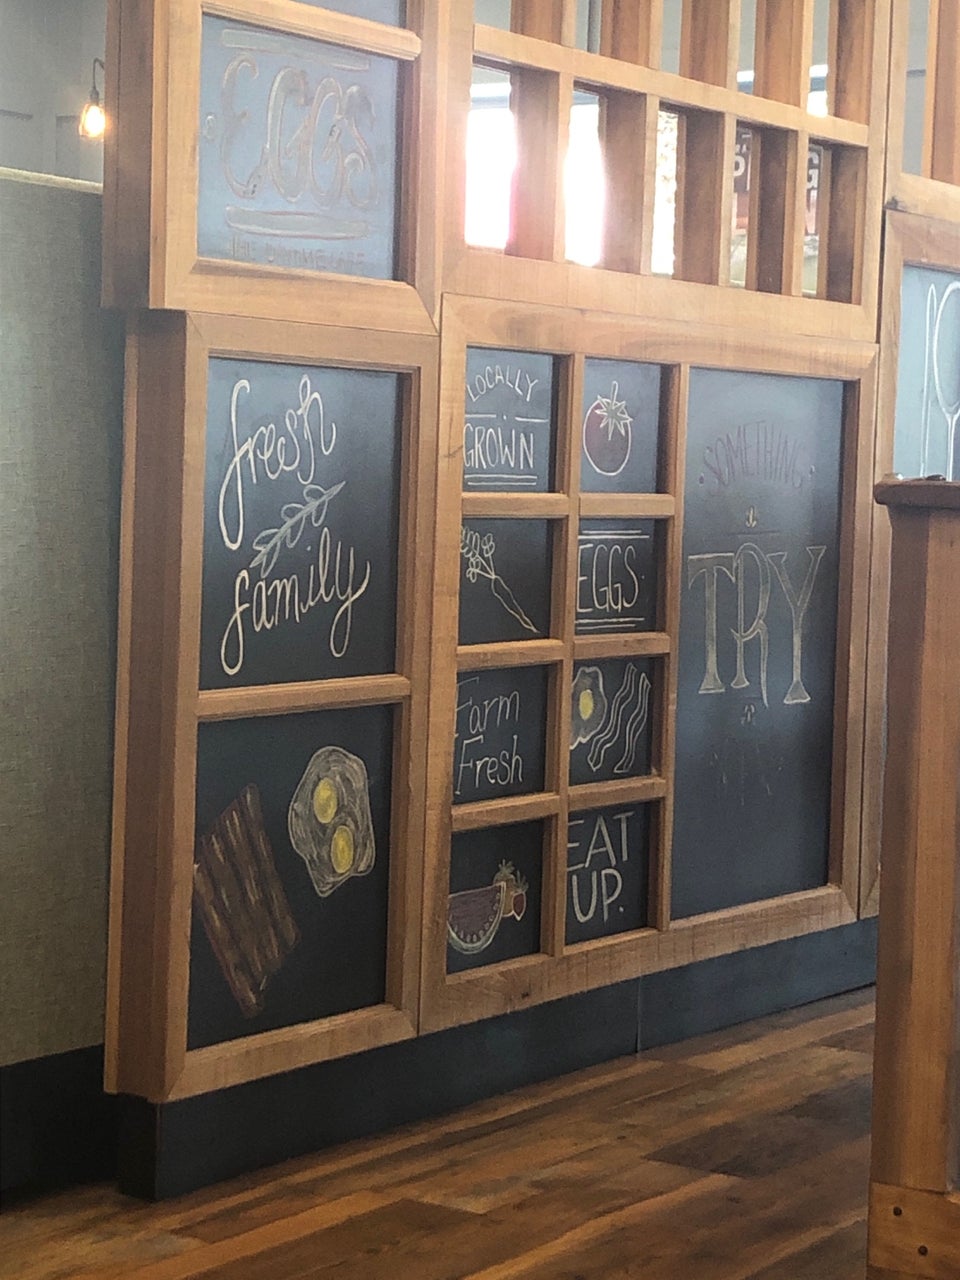 EGGS
fresh
family
LOCALLY
GROWN
EGGS
Farm
Fresh
EAT
UP.
SOMETHING
TRY